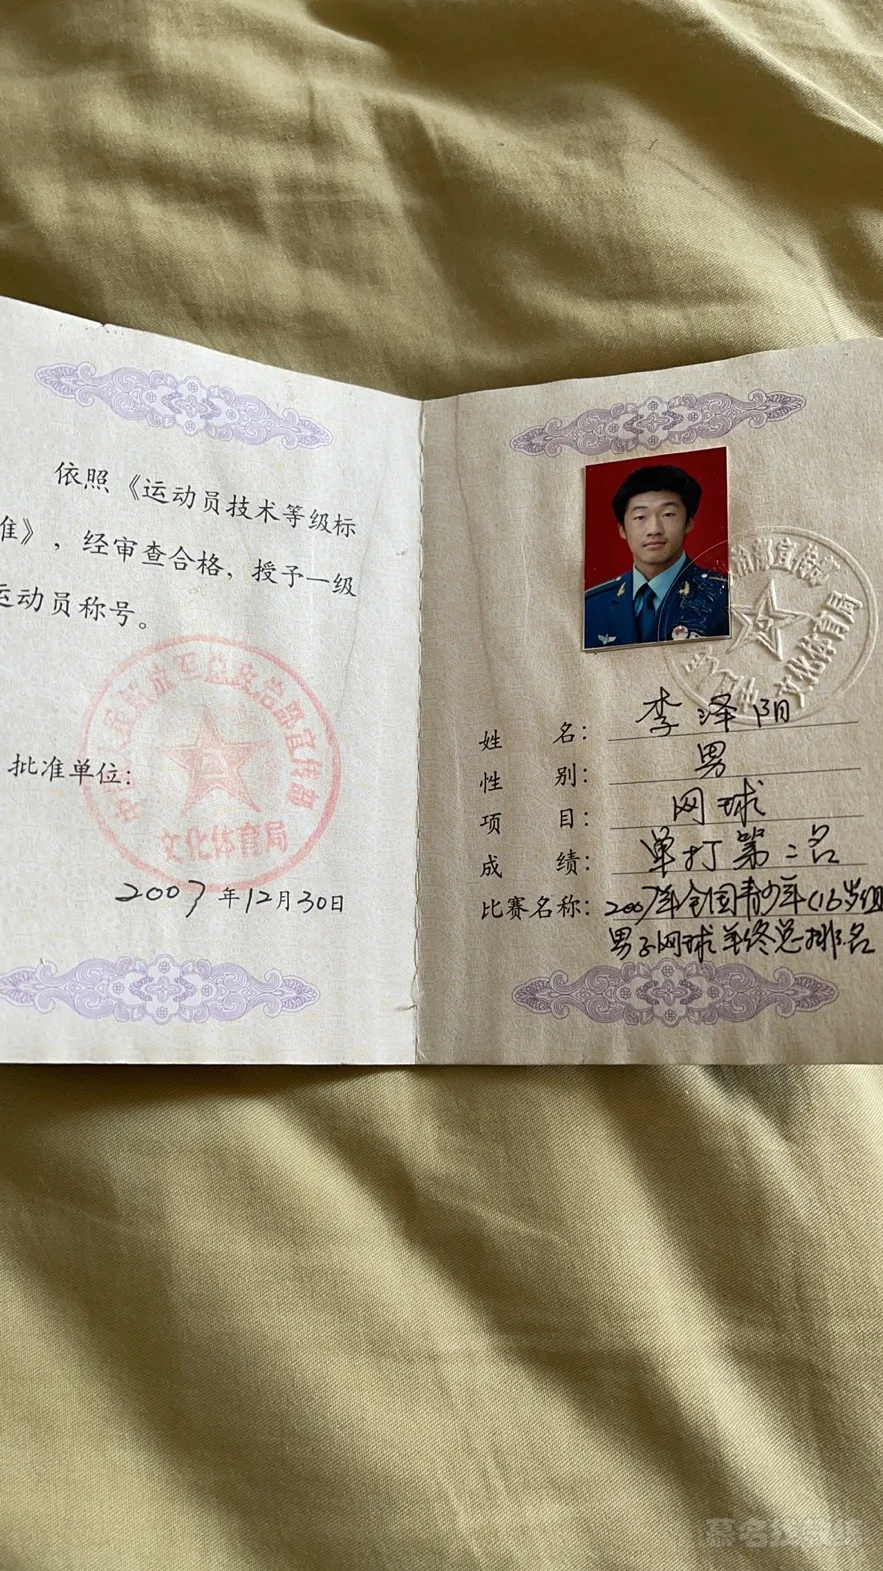 依照《运动员技术等级标
准》，经审查合格，授予一级
运动员称号。
批准单位：
中国人民解放军总政治部宣传部
文化体育局
2007年12月30日
文化体育局
姓名：李泽阳
性别：男
项目：网球
成绩：单打第二名
比赛名称：2007年全国青少年(16岁组
男子网球年终总排名